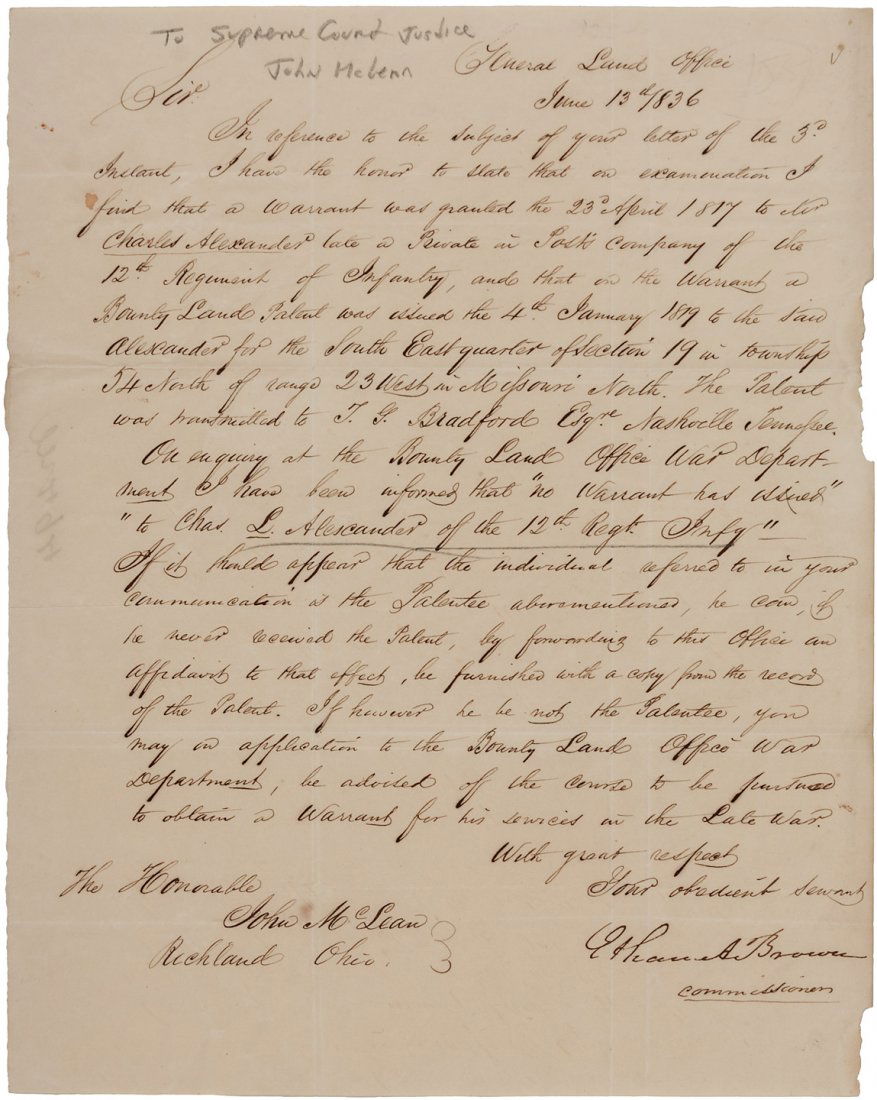 To Supreme Court Justice
John McLean
General Land Office
June 13th 1836
Sir.
In reference to the subject of your letter of the 3d
Instant, I have the honor to state that on examination I
find that a Warrant was granted the 23d April 1817 to Mr
Charles Alexander late a Private in Post's company of the
12th Regiment of Infantry, and that on the Warrant a
Bounty Land Patent was issued the 4th January 1819 to the said
Alexander for the South East quarter of Section 19 in township
54 North of range 23 West in Missouri North. The Patent
was transmitted to T. G. Bradford Esqre Nashville Tennessee.
On enquiry at the Bounty Land Office War Depart-
ment I have been informed that "no Warrant has issued"
"to Chas. L. Alexander of the 12th Regt. Infy" —
If it should appear that the individual referred to in your
communication is the Patentee abovementioned, he can, if
he never received the Patent, by forwarding to this Office an
affidavit to that effect, be furnished with a copy from the record
of the Patent. If however he be not the Patentee, you
may on application to the Bounty Land Office War
Department, be advised of the course to be pursued
to obtain a Warrant for his services in the Late War.
With great respect
Your obedient servant
The Honorable
John McLean
Richland Ohio.
Ethan A Brown
Commissioner